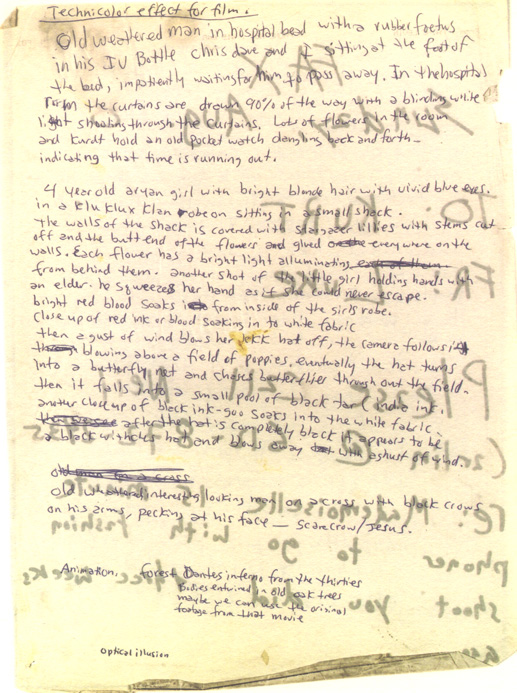 Technicolor effect for film.
Old weathered man in hospital bead with a rubber foetus
in his IV Bottle Chris dave and I sitting at the foot of
the bed, impatiently waiting for him to pass away. In the hospital
room the curtains are drawn 90% of the way with a blinding white
light shooting through the curtains. Lots of flowers in the room
and Kurdt hold an old pocket watch dangling back and forth -
indicating that time is running out.
4 year old aryan girl with bright blonde hair with vivid blue eyes.
in a Klu Klux Klan robe on sitting in a small shack.
the walls of the shack is covered with stargazer lillies with stems cut
off and the butt end of the flowers and glued everywere on the
walls. Each flower has a bright light alluminating
from behind them. another shot of the little girl holding hands with
an elder. he squeezes her hand as if she could never escape.
bright red blood soaks from inside of the girls robe.
close up of red ink or blood soaking in to white fabric
then a gust of wind blows her KKK hat off, the camera follows it
blowing above a field of poppies. eventually the hat turns
into a butterfly net and chases butterflies through out the field.
then it falls into a small pool of black tar (india ink.
another close up of black ink-goo soaks into the white fabric.
after the hat is completely black it appears to be
a black witches hat and blows away with a gust of wind.
old man for a cross
old interesting looking man on a cross with black crows
on his arms, pecking at his face — scarecrow/Jesus.
Animation. forest Dantes inferno from the thirties
bodies entwined in old oak trees
maybe we can use the original
footage from that movie
optical illusion
TO: KURT
FR:
Please
re: Mademoiselle
with fashion
to go
phoner
shoot you weeks